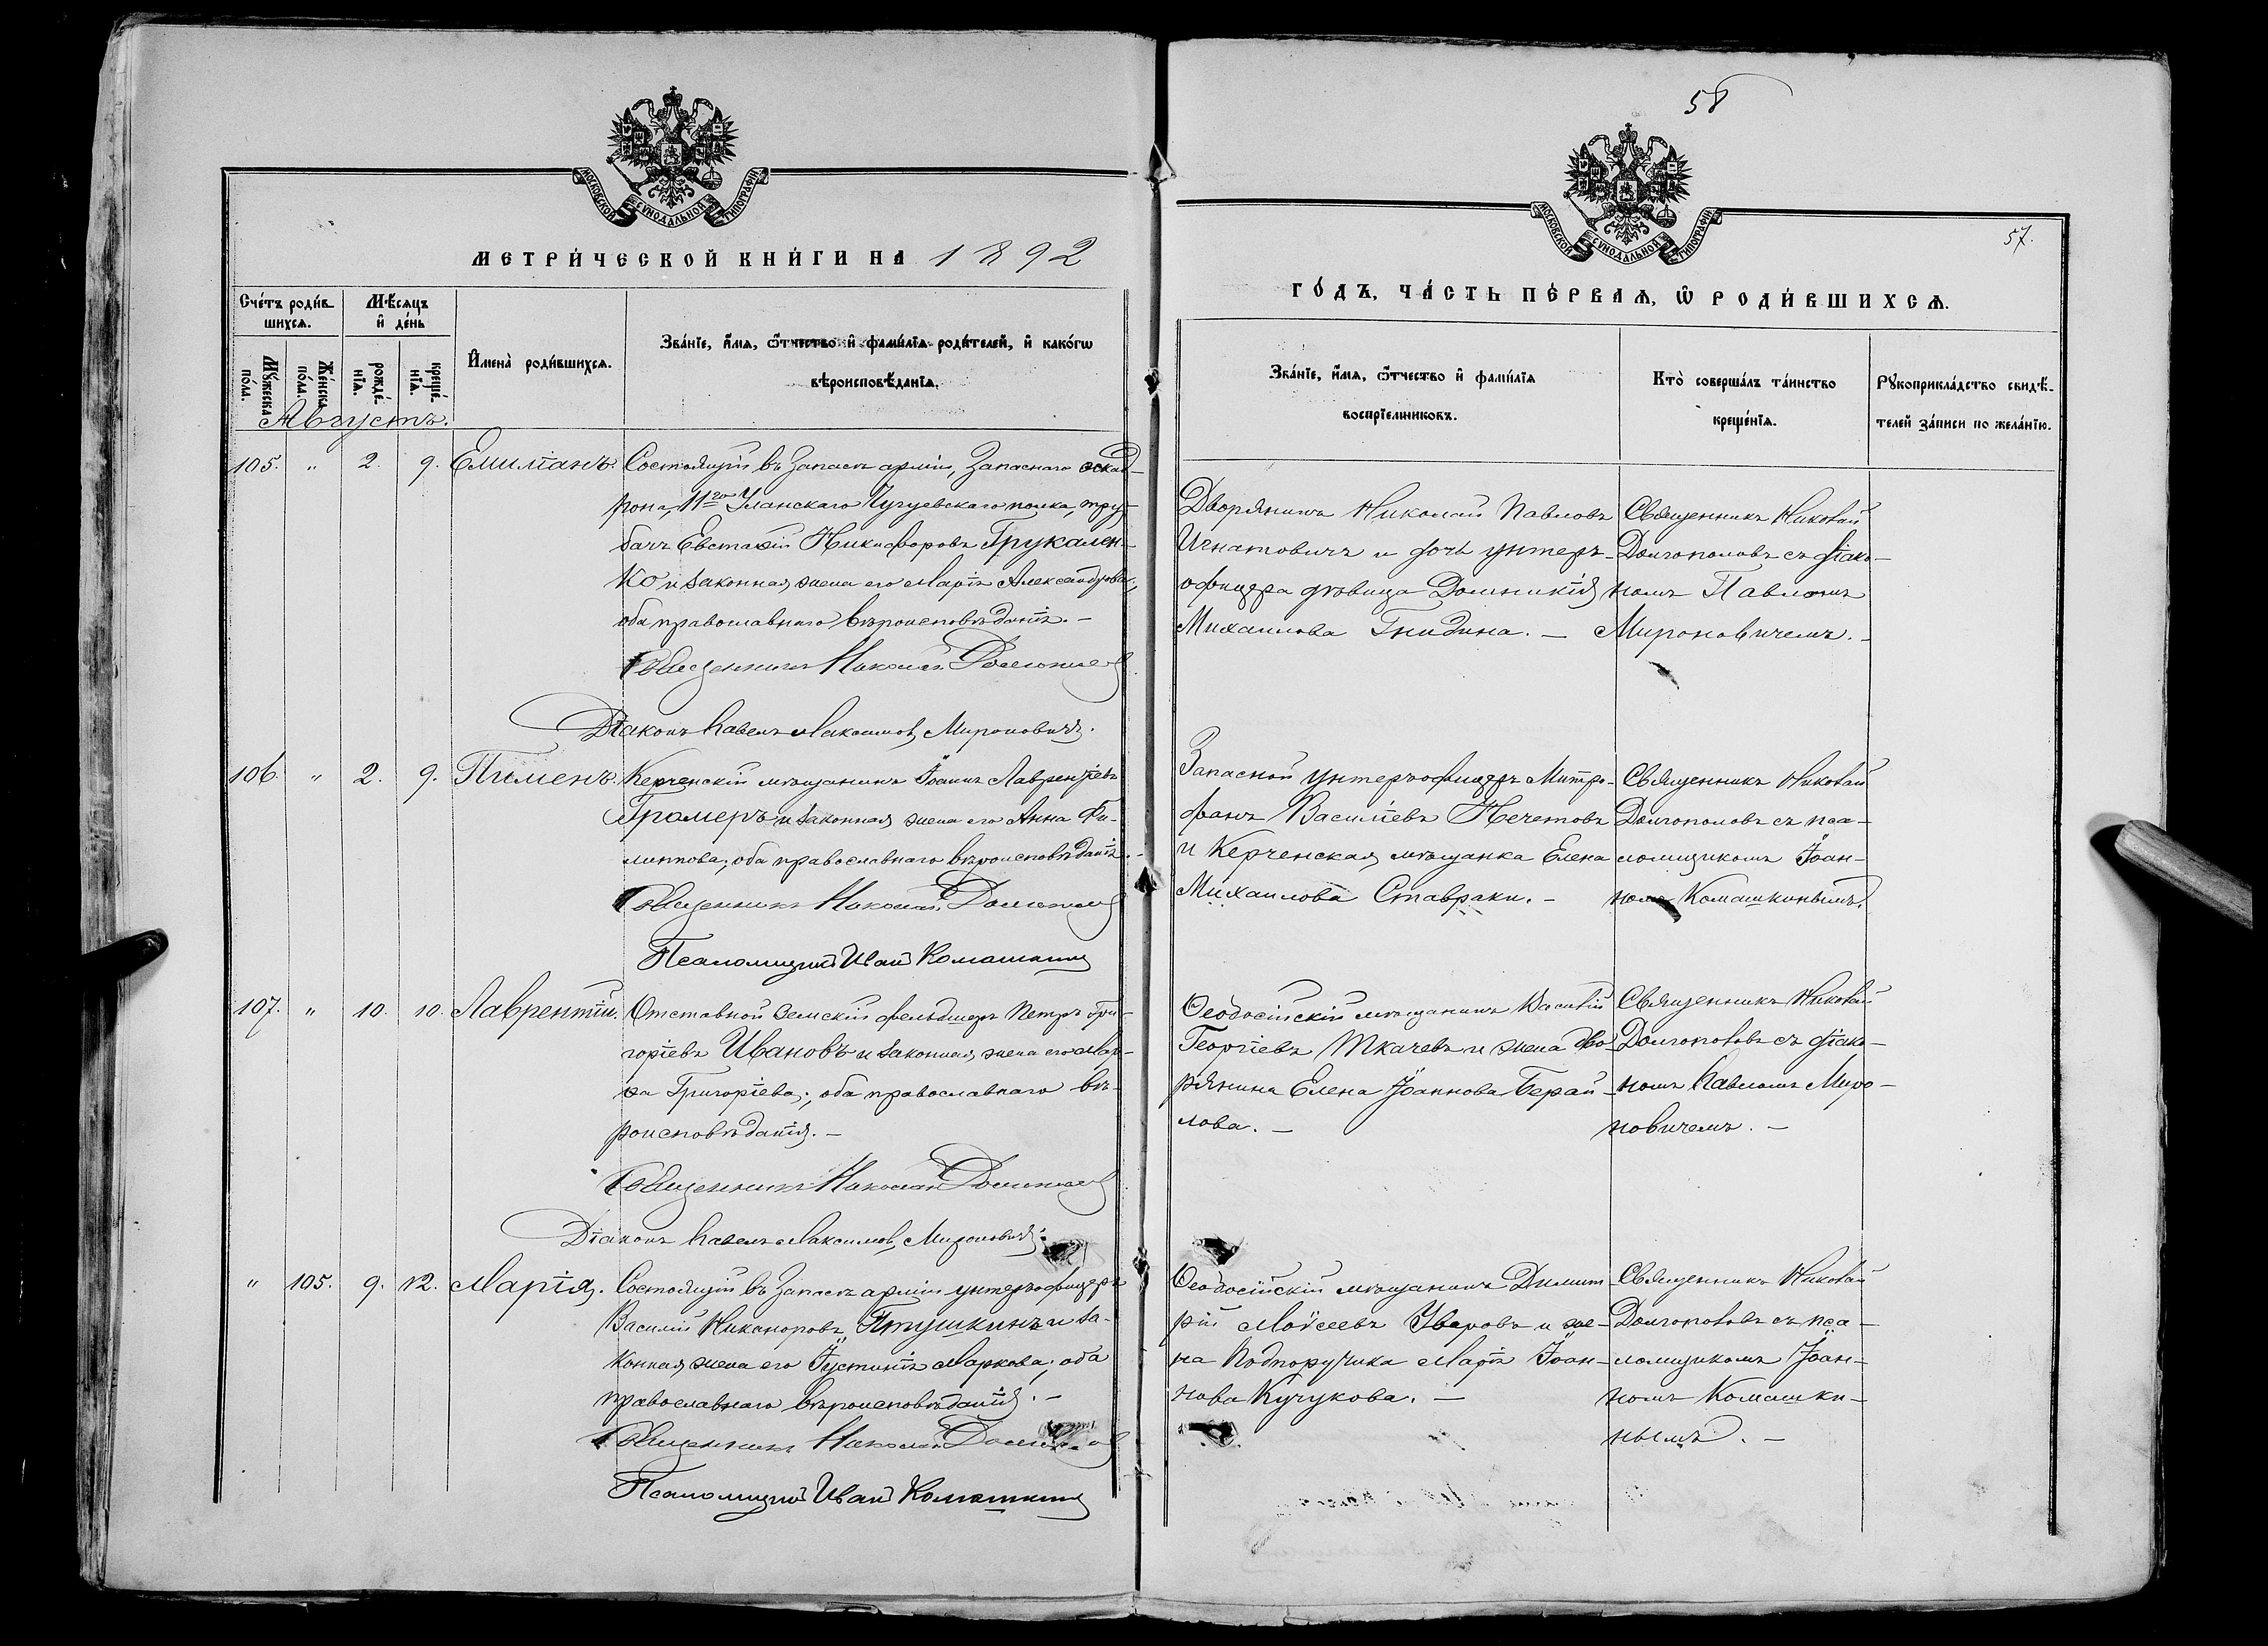 МОСКОВСКОЙ СУНОДАЛЬНОЙ ТИПОГРАФІИ
МЕТРИ́ЧЕСКОЙ КНИ́ГИ НА 1892
Сче́тъ роди́в-
шихсѧ.
Мѣ́сѧцъ
и҆ де́нь
И҆мена̀ роди́вшихсѧ.
Зва́нїе, и҆́мѧ, ѻ҆́тчество и҆ фами́лїѧ роди́телей, и҆ како́гѡ
вѣроисповѣ́данїѧ.
Мꙋ́жеска
по́ла.
Же́нска
по́ла.
рожде́-
нїѧ.
креще́-
нїѧ.
Августъ.
105. " 2. 9. Емиліанъ. Состоящій въ запасѣ арміи, запаснаго эскад-
рона, 11го Уланскаго Чугуевскаго полка, тру-
бачъ Евстафій Никифоровъ Грукален-
ко и законная жена его Марія Александрова,
оба православнаго вѣроисповѣданія. –
Священникъ Николай Долгополовъ
Діаконъ Павелъ Максимов Мироновичъ.
106. " 2. 9. Пименъ. Керченскій мѣщанинъ Іоаннъ Лаврентіевъ
Громеръ и законная жена его Анна Фи-
липпова; оба православнаго вѣроисповѣданія. –
Священникъ Николай Долгополовъ
Псаломщикъ Иванъ Комашкинъ
107. " 10. 10. Лаврентій. Отставной земскій фельдшеръ Петръ Гри-
горіевъ Ивановъ и законная жена его Мар-
ѳа Григоріева; оба православнаго вѣ-
роисповѣданія. –
Священникъ Николай Долгополовъ
Діаконъ Павелъ Максимов Мироновичъ.
" 105. 9. 12. Марія. Состоящій въ запасѣ арміи унтеръ-офицеръ
Василій Никаноровъ Птушкинъ и за-
конная жена его Іустинія Маркова; оба
православнаго вѣроисповѣданія. –
Священникъ Николай Долгополовъ
Псаломщикъ Иванъ Комашкинъ
58
МОСКОВСКОЙ СУНОДАЛЬНОЙ ТИПОГРАФІИ
57.
ГО́ДЪ, ЧА́СТЬ ПЕ́РВАѦ, Ѡ҆ РОДИ́ВШИХСѦ.
Зва́нїе, и҆́мѧ, ѻ҆́тчество и҆ фами́лїѧ
воспрїемниковъ.
Кто̀ соверша́лъ та́инство
креще́нїѧ.
Рꙋкоприкла́дство свидѣ́-
телей за́писи по жела́нїю.
Дворянинъ Николай Павловъ
Игнатовичъ и дочь унтеръ-
офицера дѣвица Домникія
Михаилова Гнидина. –
Священникъ Николай
Долгополовъ съ діако-
номъ Павломъ
Мироновичемъ. –
Запасной унтеръ-офицеръ Митро-
фанъ Василіевъ Нечетовъ
и Керченская мѣщанка Елена
Михаилова Ставраки. –
Священникъ Николай
Долгополовъ съ пса-
ломщикомъ Іоан-
номъ Комашкинымъ.
Ѳеодосійскій мѣщанинъ Василій
Георгіевъ Ткачевъ и жена дво-
рянина Елена Іоаннова Берай-
лова. –
Священникъ Николай
Долгополовъ съ діако-
номъ Павломъ Миро-
новичемъ. –
Ѳеодосійскій мѣщанинъ Димит-
рій Моѵсеевъ Уваровъ и же-
на Подпоручика Марія Іоан-
нова Кучукова. –
Священникъ Николай
Долгополовъ съ пса-
ломщикомъ Іоан-
номъ Комашки-
нымъ. –